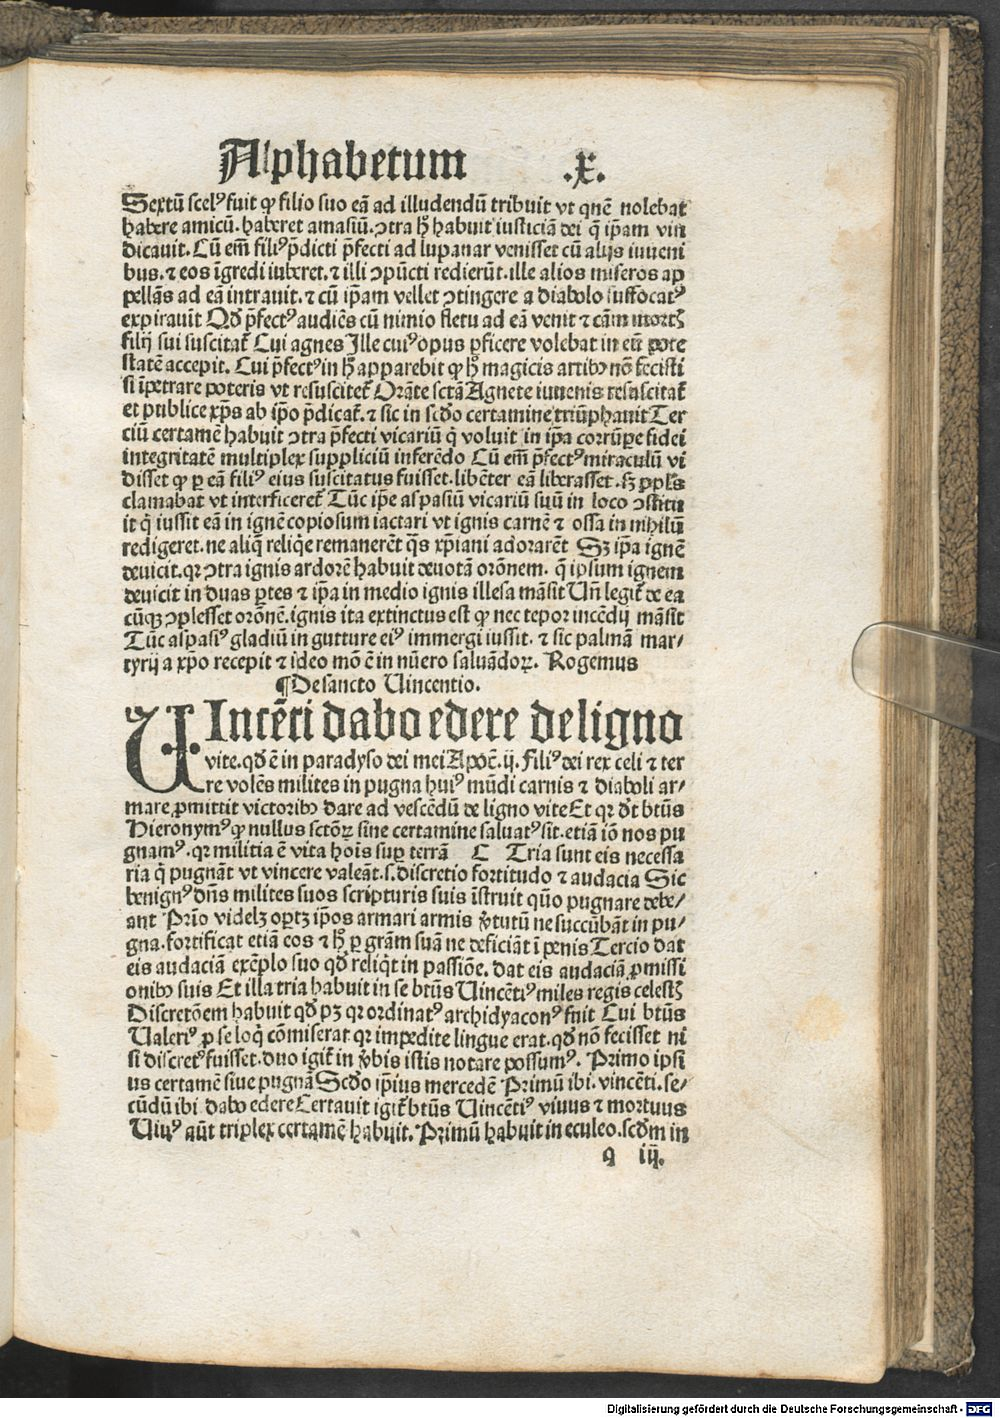 Alphabetum .x.
Sextū scelꝰ fuit ꝙ filio suo eā ad illudendū tribuit vt quē nolebat
habere amicū. haberet amasiū. ɔtra hꝭ habuit iusticiā dei q̄ ip̄am vin
dicauit. Cū em̄ filiꝰ p̄dicti p̄fecti ad lupanar venisset cū alijs iuueni
bus. ⁊ eos īgredi iuberet. ⁊ illi ɔpūcti redierūt. ille alios miseros ap
pellās ad eā intrauit. ⁊ cū ip̄am vellet ɔtingere a diabolo suffocatꝰ
expirauit Qd̄ p̄fectꝰ audiēs cū nimio fletu ad eā venit ⁊ cām mortꝭ
filij sui suscitat̄ Cui agnes Ille cuiꝰ opus ꝑficere volebat in eū pote
statē accepit. Cui p̄fectꝰ in hꝭ apparebit ꝙ hꝭ magicis artibꝰ nō fecisti
si īpetrare poteris vt resuscitet̄ Orāte sctā Agnete iuuenis resuscitat̄
et publice xp̄s ab ip̄o p̄dicat̄. ⁊ sic in scd̄o certamine triūphauit Ter
ciū certamē habuit ɔtra p̄fecti vicariū q̄ voluit in ip̄a corrūpe fidei
integritatē multiplex suppliciū inferēdo Cū em̄ p̄fectꝰ miraculū vi
disset ꝙ ꝑ eā filiꝰ eius suscitatus fuisset. libēter eā liberasset. sꝫ ppl̄s
clamabat vt interficeret̄ Tūc ip̄e aspasiū vicariū suū in loco ɔstitu
it q̄ iussit eā in ignē copiosum iactari vt ignis carnē ⁊ ossa in nihilū
redigeret. ne aliq̄ reliq̄e remanerēt q̄s xp̄iani adorarēt Sꝫ ip̄a ignē
deuicit. qꝛ ɔtra ignis ardorē habuit deuotā orōnem. q̄ ipsum ignem
deuicit in duas ꝑtes ⁊ ip̄a in medio ignis illesa māsit Un̄ legit̄ de ea
cūqꝫ ɔplesset orōnē. ignis ita extinctus est ꝙ nec tepor incēdij māsit
Tūc aspasiꝰ gladiū in gutture eiꝰ immergi iussit. ⁊ sic palmā mar-
tyrij a xp̄o recepit ⁊ ideo mō ē in nūero saluādoꝝ. Rogemus
¶ De sancto Uincentio.
UIncēti dabo edere de ligno
vite. qd̄ ē in paradyso dei mei Apoc̄. ij. Filiꝰ dei rex celi ⁊ ter
re volēs milites in pugna huiꝰ mūdi carnis ⁊ diaboli ar-
mare ꝓmittit victoribꝰ dare ad vescēdū de ligno vite Et qꝛ dt̄ btūs
Hieronymꝰ ꝙ nullus sctōꝝ sine certamine saluatꝰ sit. etiā iō nos pu
gnamꝰ. qꝛ militia ē vita hois̄ suꝑ terrā C Tria sunt eis necessa
ria q̄ pugnāt vt vincere valeāt. s. discretio fortitudo ⁊ audacia Sic
benignꝰ dn̄s milites suos scripturis suis īstruit quō pugnare debe-
ant Prīo videlꝫ oꝑtꝫ ip̄os armari armis v̄tutū ne succūbāt in pu-
gna. fortificat etiā eos ⁊ hꝭ ꝑ grām suā ne deficiāt ī penis Tercio dat
eis audaciā exēplo suo qd̄ reliq̄t in passiōe. dat eis audaciā ꝓmissi
onibꝰ suis Et illa tria habuit in se btūs Uincētiꝰ miles regis celestꝭ
Discretōem habuit qd̄ pꝫ qꝛ ordinatꝰ archidyaconꝰ fuit Cui btūs
Ualeriꝰ ꝓ se loq̄ cōmiserat qꝛ impedite lingue erat. qd̄ nō fecisset ni
si discretꝰ fuisset. duo igit̄ in v̄bis istis notare possumꝰ. Primo ipsi
us certamē siue pugnā Scd̄o ip̄ius mercedē Primū ibi. vincēti. se-
cūdū ibi. dabo edere Certauit igit̄ btūs Uincētiꝰ viuus ⁊ mortuus
Uiuꝰ aūt triplex certamē habuit. Primū habuit in eculeo. scd̄m in
q iij.
Digitalisierung gefördert durch die Deutsche Forschungsgemeinschaft - DFG